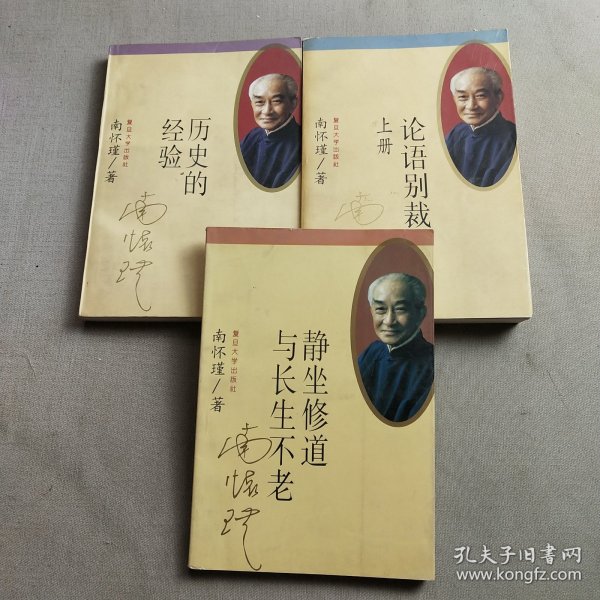 历史的
经验
复旦大学出版社
南怀瑾/著
南怀瑾
论语别裁
上册
复旦大学出版社
南怀瑾/著
南
静坐修道
与长生不老
复旦大学出版社
南怀瑾/著
南怀瑾
孔夫子旧书网
www.kongfz.com